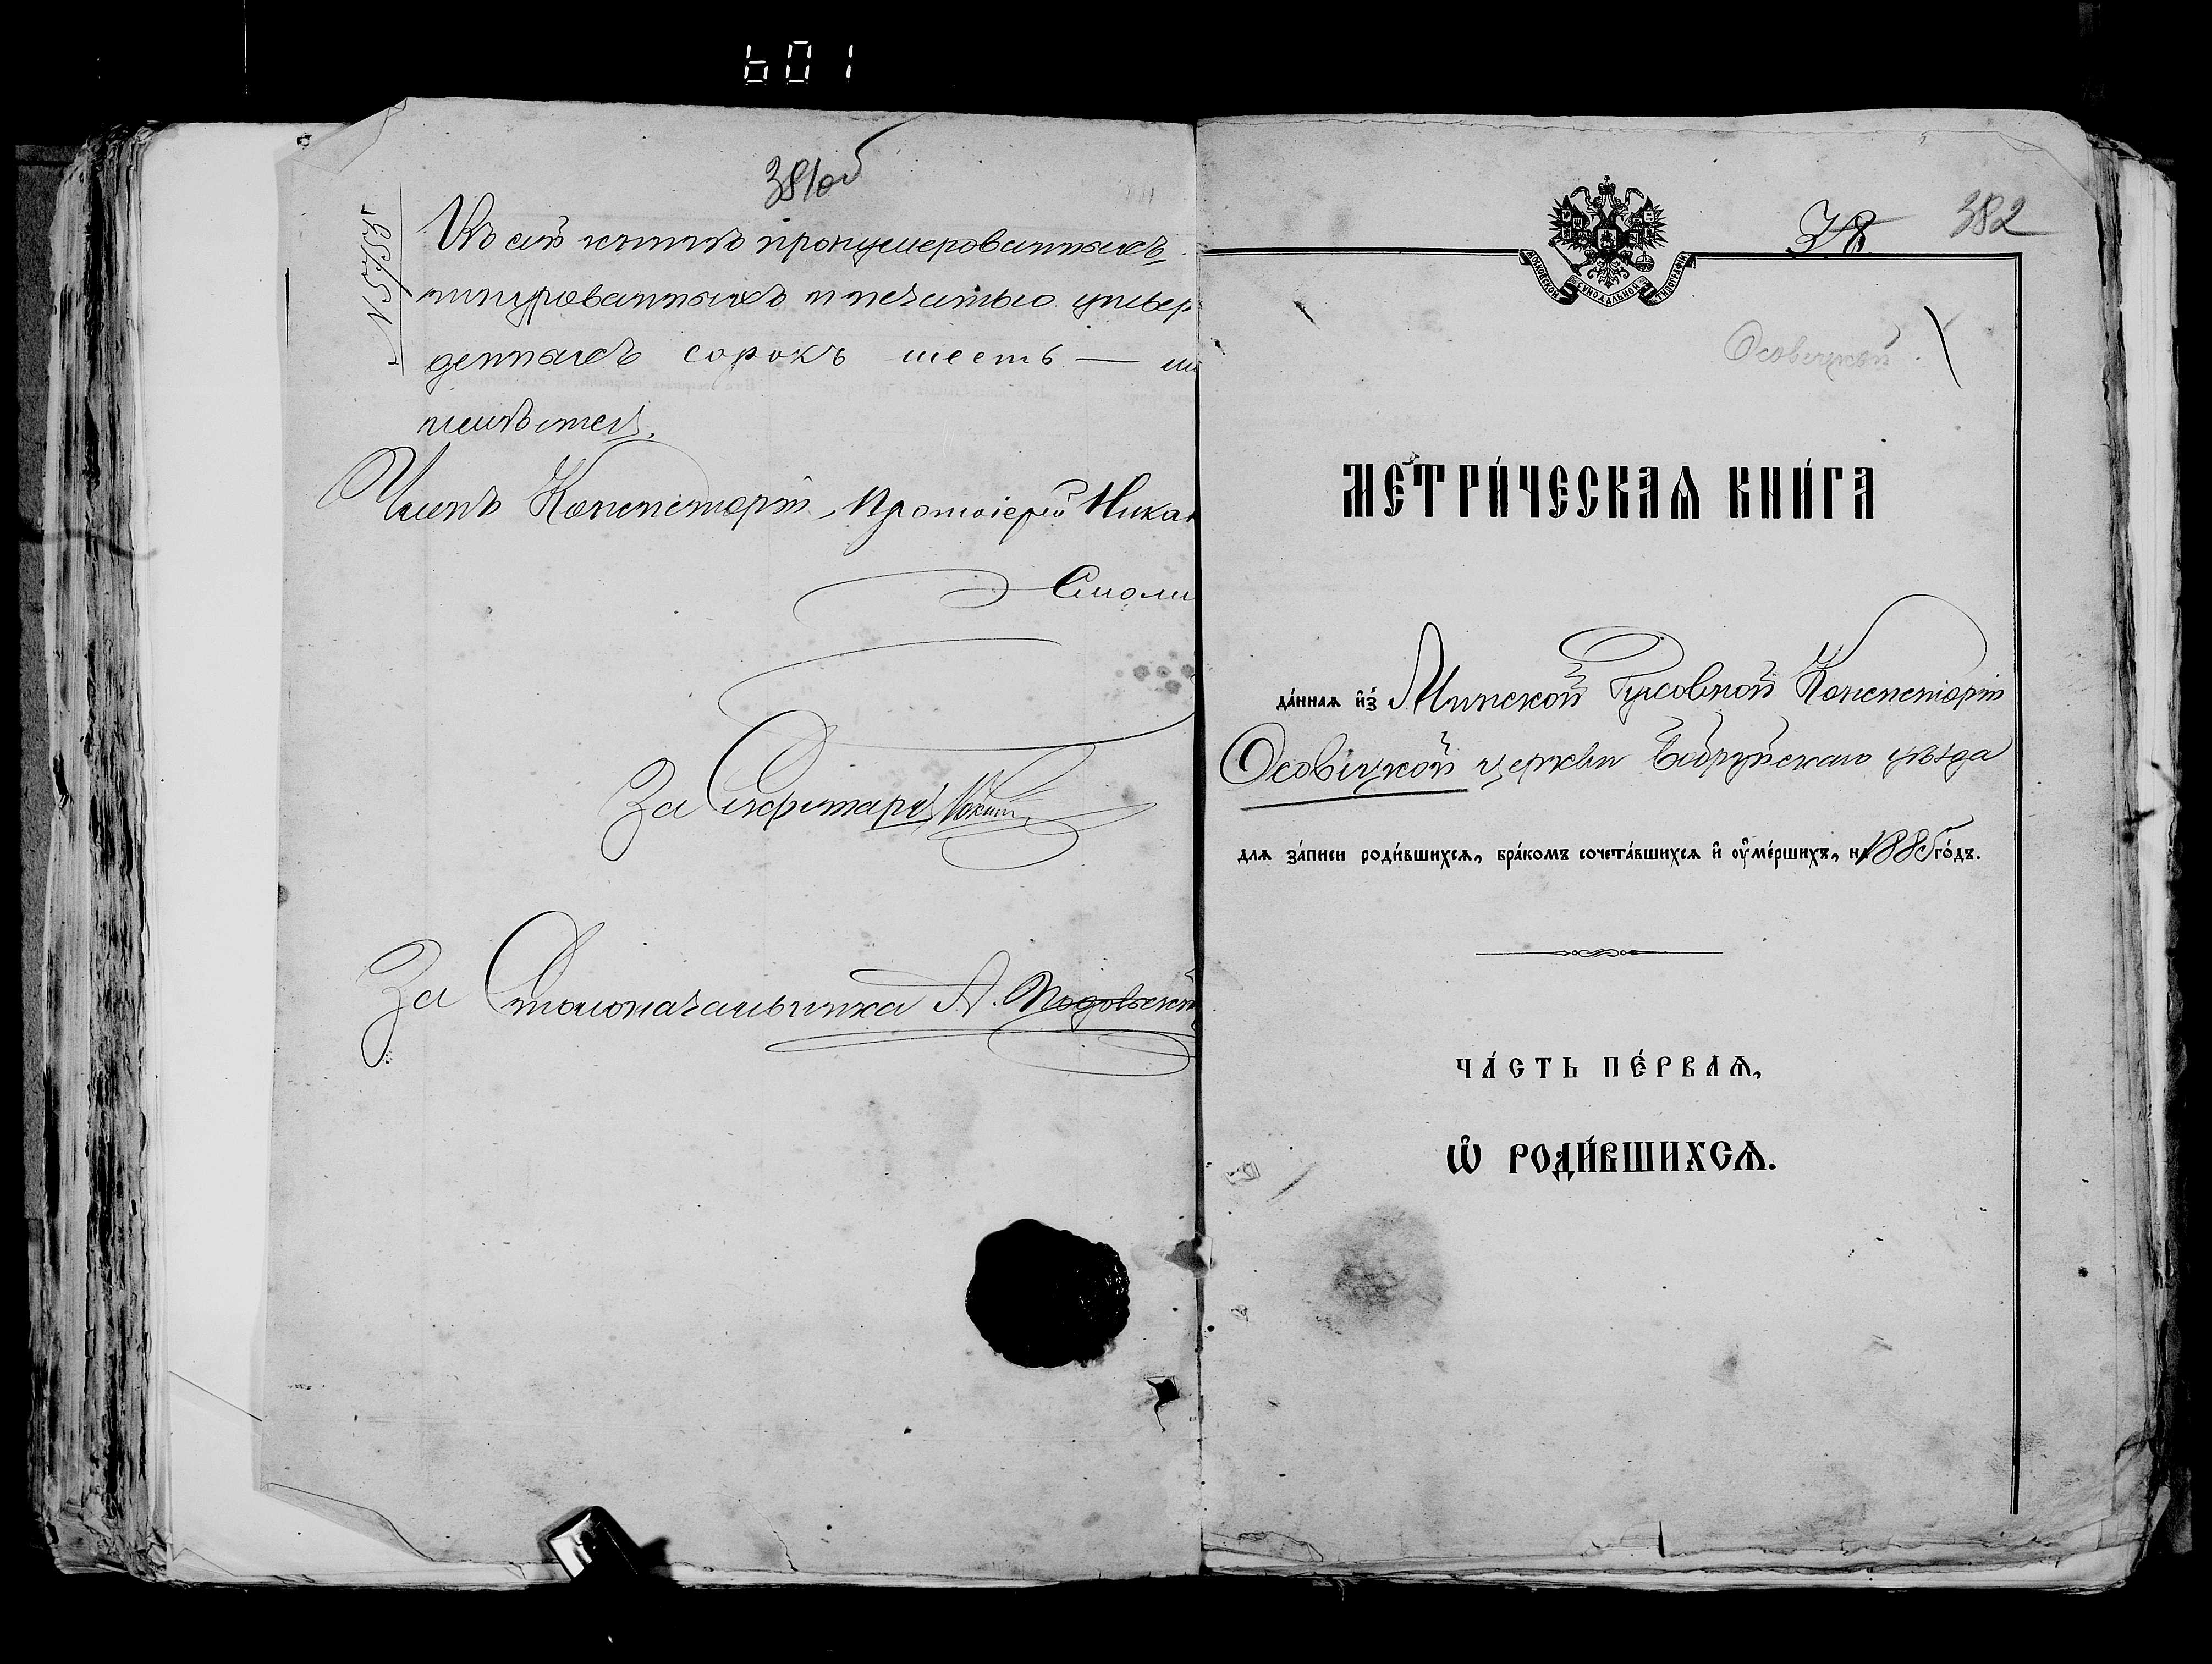 601
381об
№ 5735
Въ сей книгѣ пронумерованныхъ,
шнурованныхъ и печатью утвер
денныхъ сорокъ шесть —
имѣется.
Членъ Консисторіи, Протоіерей Ника
Смоли
За Секретаря
За Столоначальника А.
38
382
МОСКОВСКОЙ СѴНОДАЛЬНОЙ ТИПОГРАФІИ
Осовецкой
МЕТРИ́ЧЕСКАѦ КНИ́ГА
да́ннаѧ и҆з̾ Минской Духовной Консисторіи
Осовецкой церкви Бобруйскаго уѣзда
для за́писи роди́вшихся, бра́комъ сочета́вшихся и҆ оу҆ме́ршихъ, на 1885 го́дъ.
ЧА́СТЬ ПЕ́РВАѦ,
Ѡ҆ РОДИ́ВШИХСѦ.